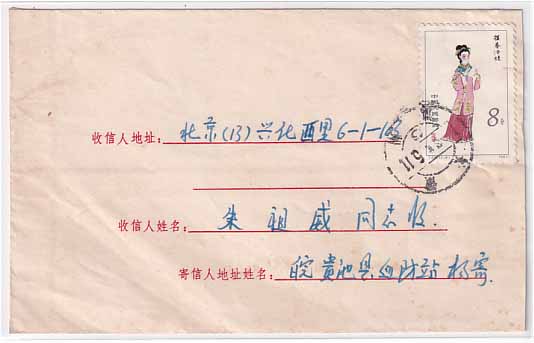 8分
收信人地址：北京(13)兴化西里6-1-103
收信人姓名：朱祖威同志收.
寄信人地址姓名：皖贵池县血防站 杨寄.